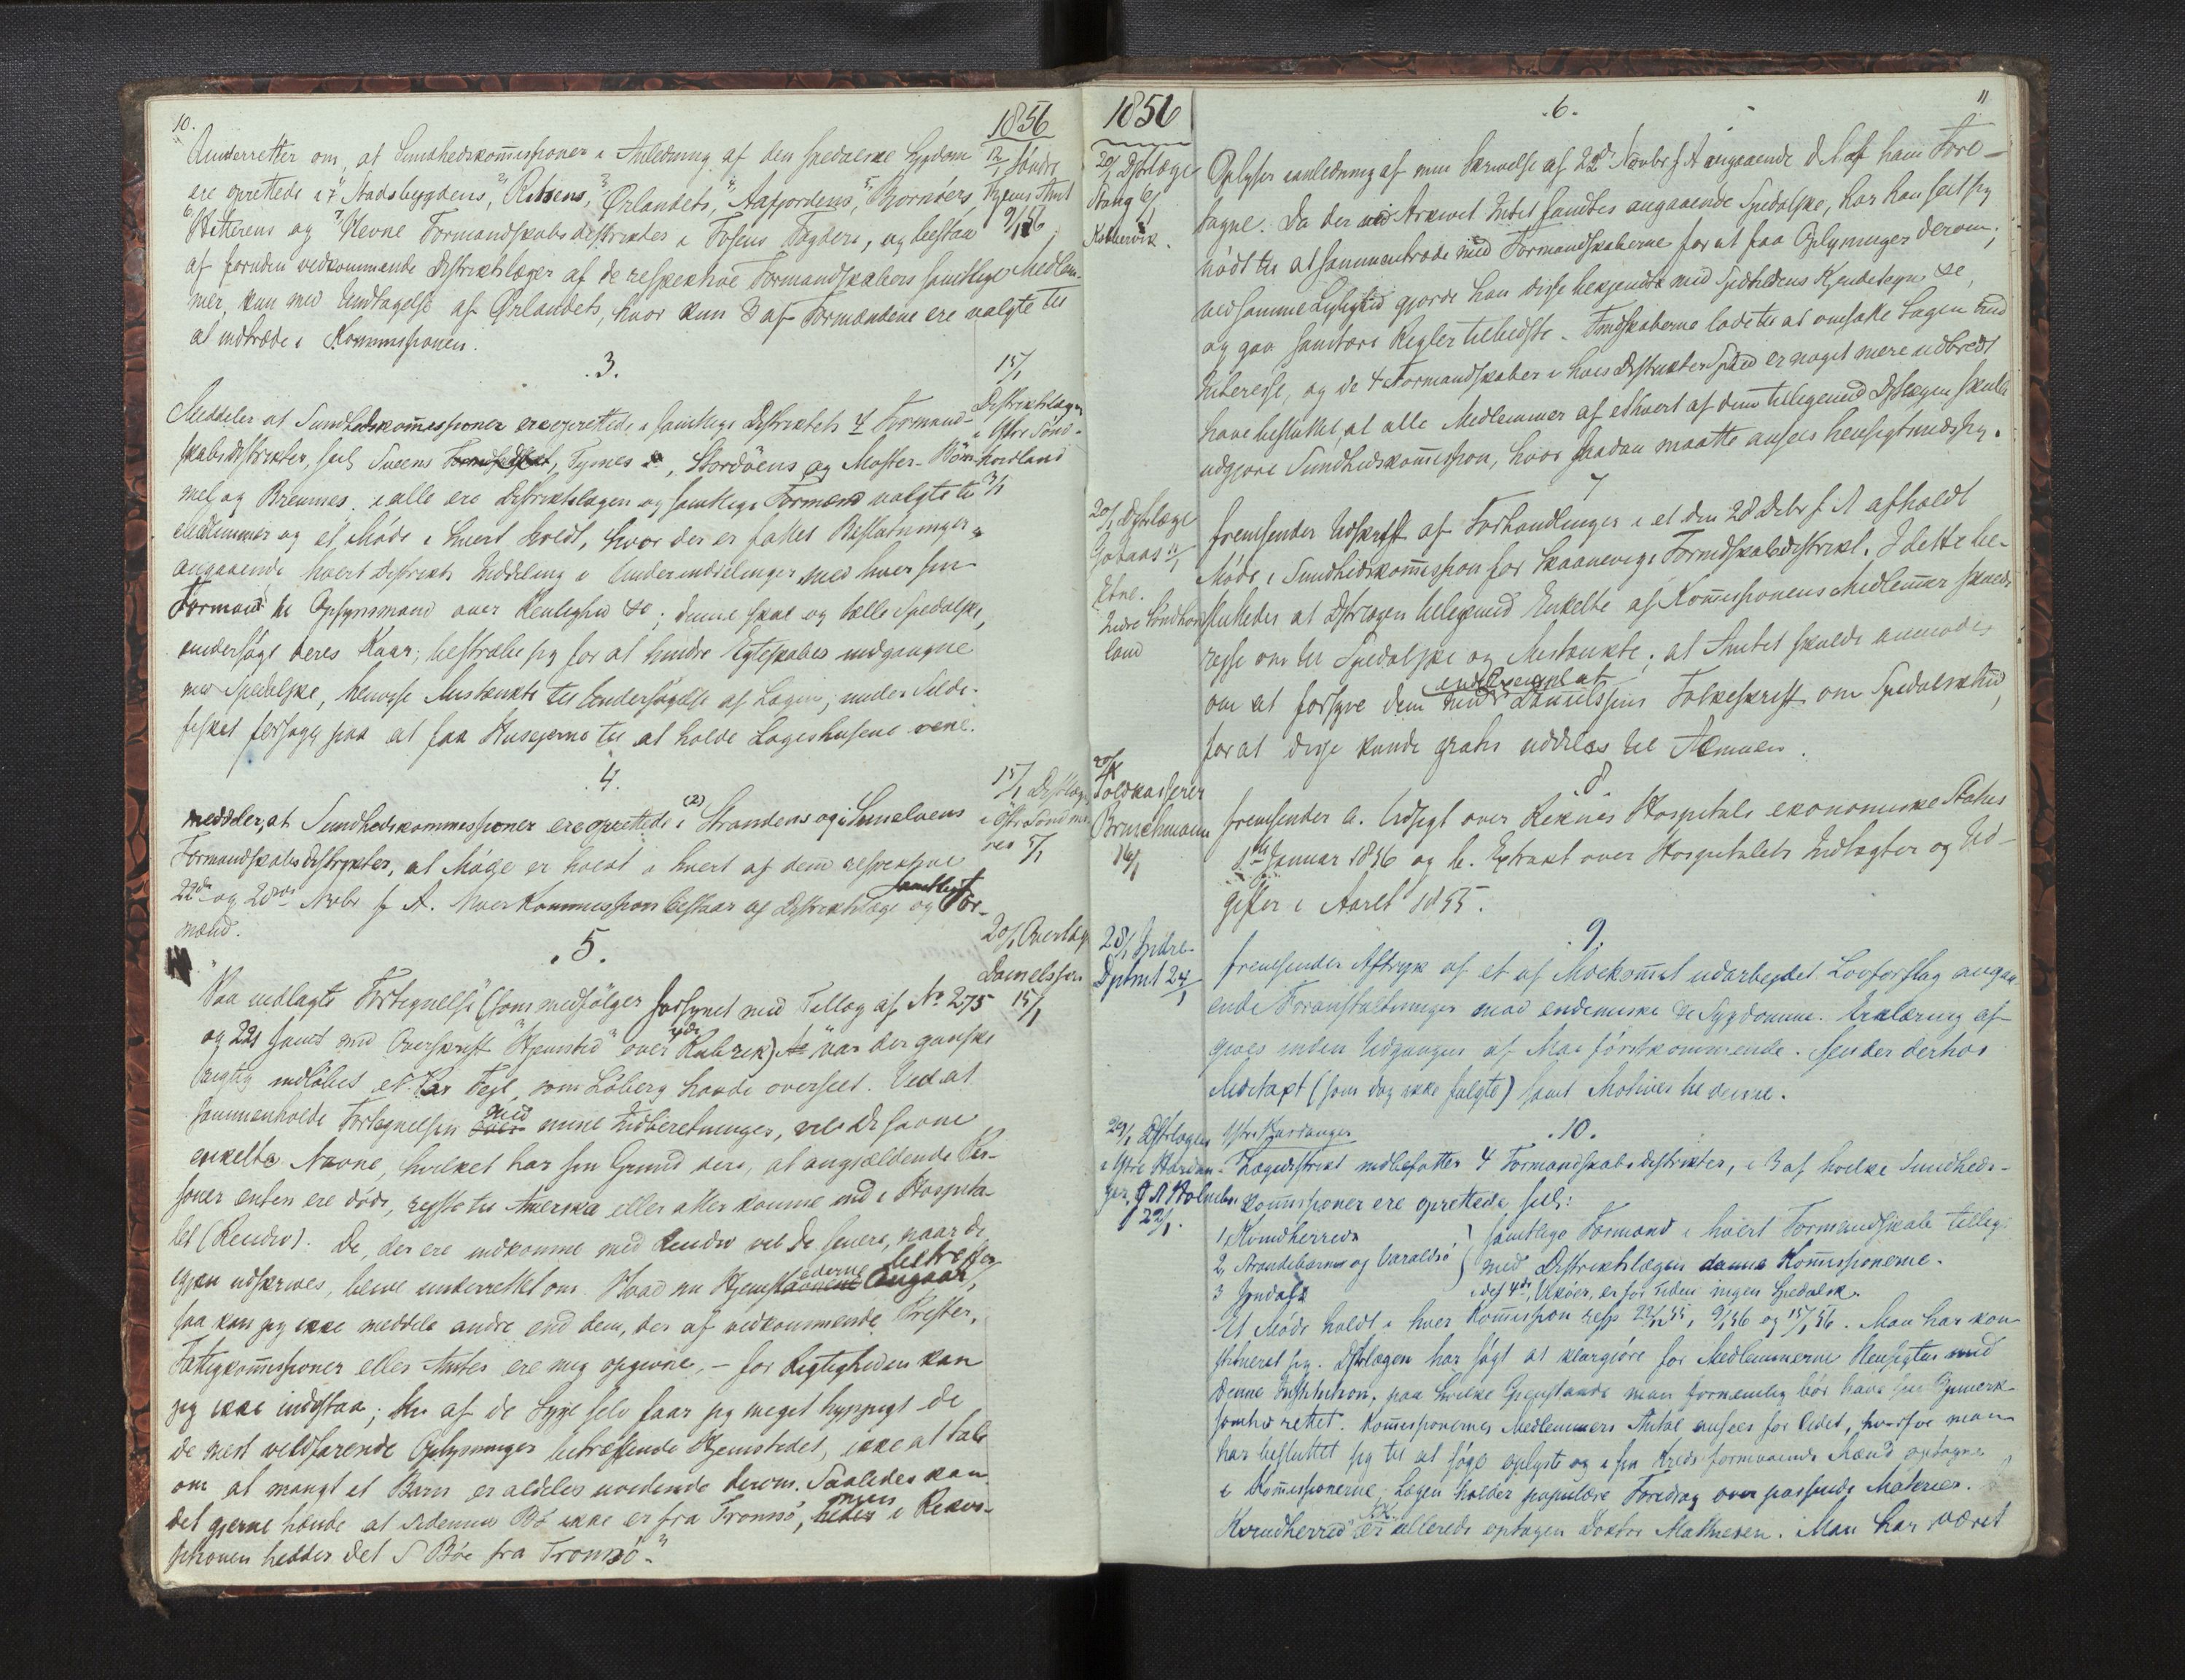 10.
1856
Underretter om, at Sundhedskommissioner i Anledning af den spedalske Sygdom
12/1 Söndre
ere oprettede i 7 Stadsbygdens, Rissens, Ørlandets, Aafjordens, Bjornörs,
Thjems Amt
Hitterens og Hevne Formandskabsdistrikter i Fosens Fogderi, og bestaa
9/1 56
af foruden vedkommende Distriktslæger af de respektive Formandskabers samtlige Medlem-
mer, kun med Undtagelse af Ørlandets, hvor kun 3 af Formændene ere valgte til
at indtræde i Kommissionen.
.3.
15/1
Distriktslægen
Meddeler at Sundhedskommissioner ere oprettede i samtlige Distriktets 4 Formand-
i Ytre Sönd-
skabsdistrikter, Tysnes, Stordöens og Moster- Böm-
hordland
mel og Bremnes. i alle ere Distriktslægen og samtlige Formænd valgte til
3/1
Medlemmer og et Möde i hvert holdt, hvor der er fattet Beslutninger
angaaende hvert Distrikts Inddeling i Underinddelinger med hver sin
Formand til Opsynsmand over Renlighed &c; denne skal og tælle Spedalske,
undersöge deres Kaar; bestræbe sig for at hindre Egteskabers indgaaelse
med Spedalske, henvise Mistænkte til Undersögelse af Lægen; under Silde-
fisket forsöge paa at faa Huseierne til at holde Logishusene rene.
.4.
15/1 Distlægen
meddeler, at Sundhedskommissioner ere oprettede i (2) Strandens og i Sunelvens
i Östre Söndmö-
Formandskabsdistrikter, at Möde er holdt i hvert af dem respektive
res 5/1
22de og 28de Novbr f. A. Hver Kommission bestaar af Distriktslæge og samtlige For-
mænd.
.5.
20/1 Overlæge
Danielssen
15/1
Paa indlagte Fortegnelse (som medfölger forsynet med Tillæg af No 275
og 221 samt med Overskrift "Hjemsted" over 4de Rubrik) var der ganske
rigtig indlöbet et Par Feil, som Löberg havde overseet. Ved at
sammenholde Fortegnelsen med mine Indberetninger, vil De savne
enkelte Navne, hvilket har sin Grund deri, at angjældende Per-
soner enten ere döde, reiste til Amerika eller atter komne ind i Hospita-
let (Recidiv). De, der ere indkomne med Recidiv vil De senere, naar de
igjen udskrives, blive underrettet om. Hvad nu Hjemstederne betræffer,
saa kan jeg ikke meddele andre end dem, der af vedkommende Prester,
Fattigkommissioner eller Amter ere mig opgivne, - for Rigtigheden kan
jeg ikke indestaa; thi af de Syge selv faar jeg meget hyppigt de
de mest vildfarende Oplysninger betræffende Hjemstedet, ikke at tale
om at mangt et Barn er aldeles uvidende derom. Saaledes kan
det gjerne hænde at Sidenius Bö ikke er fra Tromsö, men i Rekvi-
sitionen hedder det S Böe fra Tromsö."
1856
11
.6.
20/1 Dstrlæge
Stang 6/1
Kobbervik.
Oplyser i anledning af min Skrivelse af 22de Novbr f A angaaende det af ham Fore-
tagne. Da der ved Arkivet Intet fandtes angaaende Spedalske, har han seet sig
nödt til at sammentræde med Formandskaberne for at faa Oplysninger derom;
ved samme Leilighed gjorde han disse bekjendte med Spedhedens Kjendetegn &c,
og gav sanitære Regler tilbedste. Fmdskaberne lode til at omfatte Sagen med
Interesse, og de 4 Formandskaber i hvis Distrikter Spdhed er noget mere udbredt
have besluttet, at alle Medlemmer af ethvert af dem tilligemed Dstlægen skulle
udgjöre Sundhedskommission, hvor saadan maatte ansees hensigtsmæssig.
7
20/1 Dstrlæge
11/1
Etne.
Indre Söndhord-
land
fremsender Udskrift af Forhandlinger i et den 28 Debr f A afholdt
Möde i Sundhedskommission for Skaanevigs Formdskabsdistrikt. I dette be-
sluttedes at Dstrlægen tilligemed Enkelte af Kommissionens Medlemmer skulde
reise om til Spedalske og Mistænkte; at Amtet skulde anmodes
om at forsyne dem med endel Exemplar af Danielssens Folkeskrift om Spedalskhed,
for at disse kunde gratis uddeles til Almuen.
20/1
Toldkasserer
Brinchmann
16/1
8
fremsender a. Udsigt over Reknes Hospitals ekonomiske Status
1ste Januar 1856 og b. Extrakt over Hospitalets Indtægter og Ud-
gifter i Aaret 1855.
.9.
28/1 Indre-
Dptmt 24/1
fremsender Aftryk af et af Medkommst udarbeidet Lovforslag angaa-
ende Foranstaltninger mod endemiske &c Sygdomme. Erklæring af-
gives inden Udgangen af Mai förstkommende. Sender derhos
Medtaxt (som dog ikke fulgte) samt Motiver til denne.
.10.
29/1 Dstrlægen
i Ytre Hardan-
ger. J A Holmboe
22/1.
Ytre Hardanger
Lægedistrikt indbefatter 4 Formandskabsdistrikter, i 3 af hvilke Sundheds-
kommissioner ere oprettede, sul:
1, Kvindherreds
2, Strandebarms og Varaldsö
3 Jondals
Samtlige Formænd i hvert Formandskab tillige
med Distriktslægen danne Kommissionerne.
i det 4de, Vikörs, er for Tiden ingen Spedalsk.
Et Möde holdt i hver Kommission resp 22/12 55, 9/1 56 og 15/1 56. Man har kon-
stitueret sig. Dstrlægen har sögt at klargjöre for Medlemmerne Hensigten med
denne Institution, paa hvilke Gjenstande man fornæmlig bör have sin Opmærk-
somhed rettet. Kommissionernes Medlemmers Antal ansees for lidet, hvorfor man
har besluttet sig til at söge oplyste og i sin Kreds formaaende Mænd optagne
i Kommissionerne. Lægen holder populære Foredrag over passende Materier.
Kvindherred er allerede optagen Doktor Mathiesen. Man har været